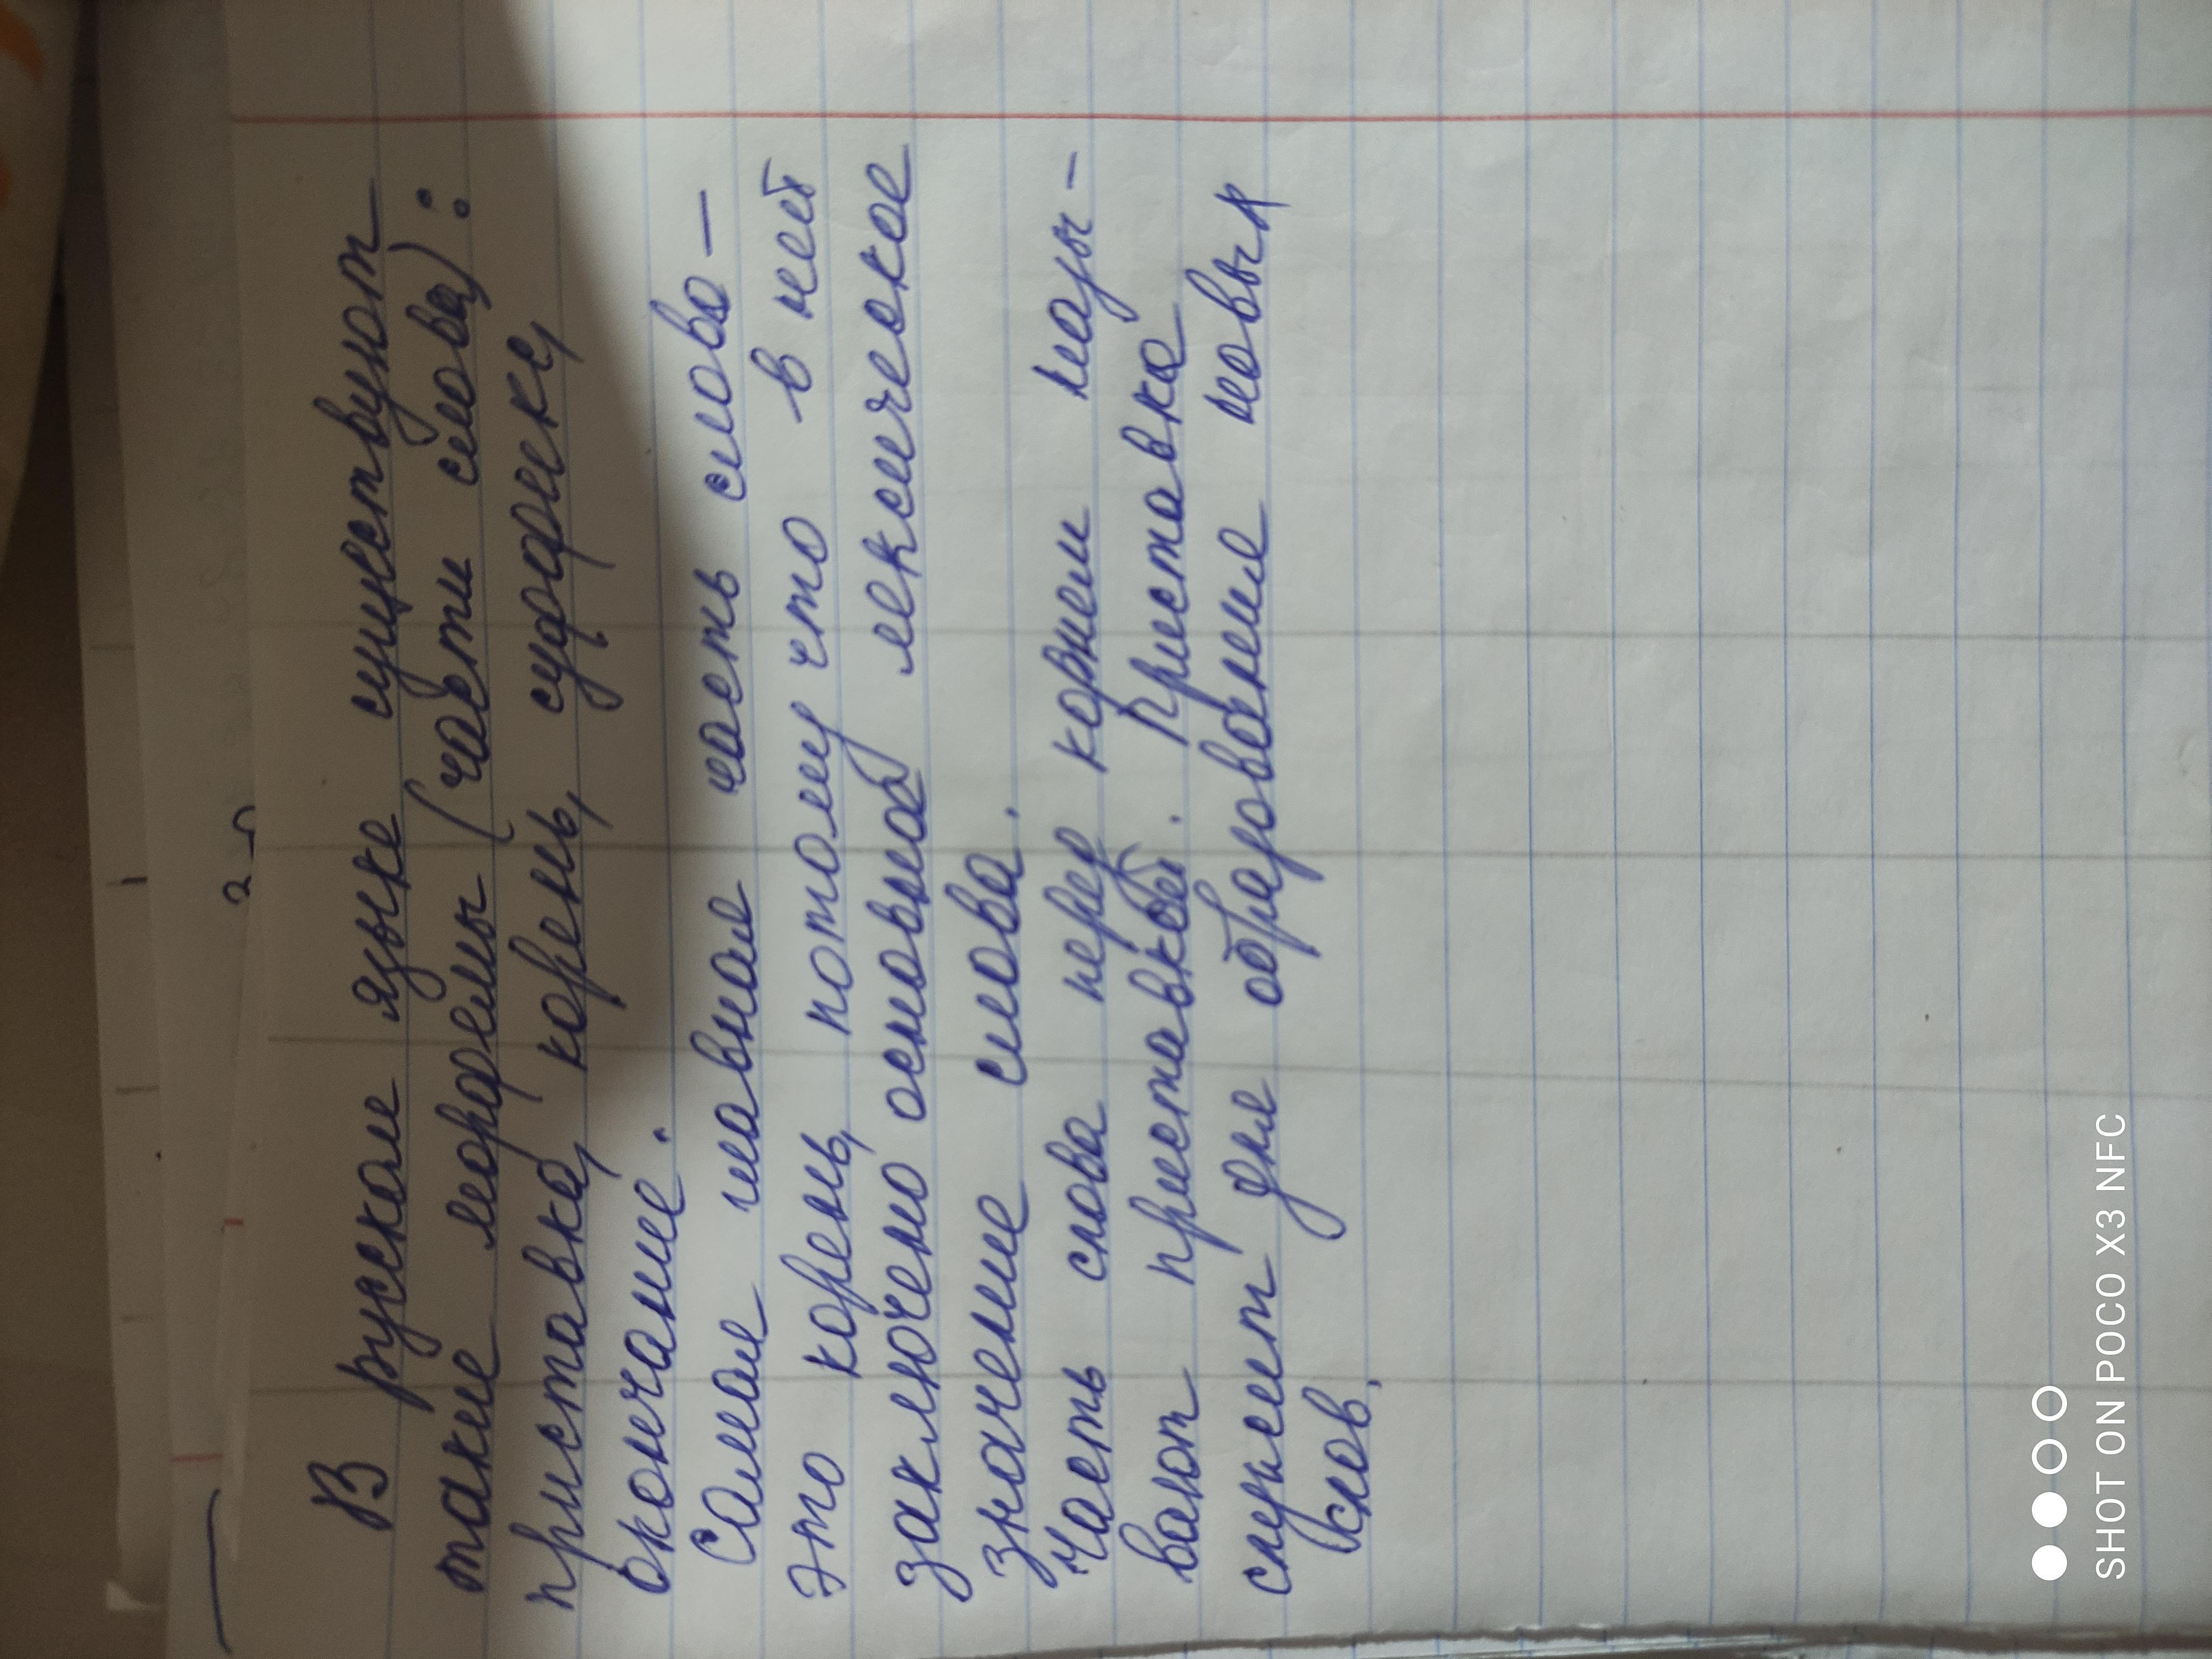 В руском языке существуют
такие морфемы (части слова):
приставка, корень, суффикс,
окончание.
Самая главная часть слова -
это корень, потому что в ней
заключено основной лексическое
значение слова.
Часть слова перед корнем назы-
вают приставкой. Приставка
служит для образования новых
слов.
SHOT ON POCO X3 NFC